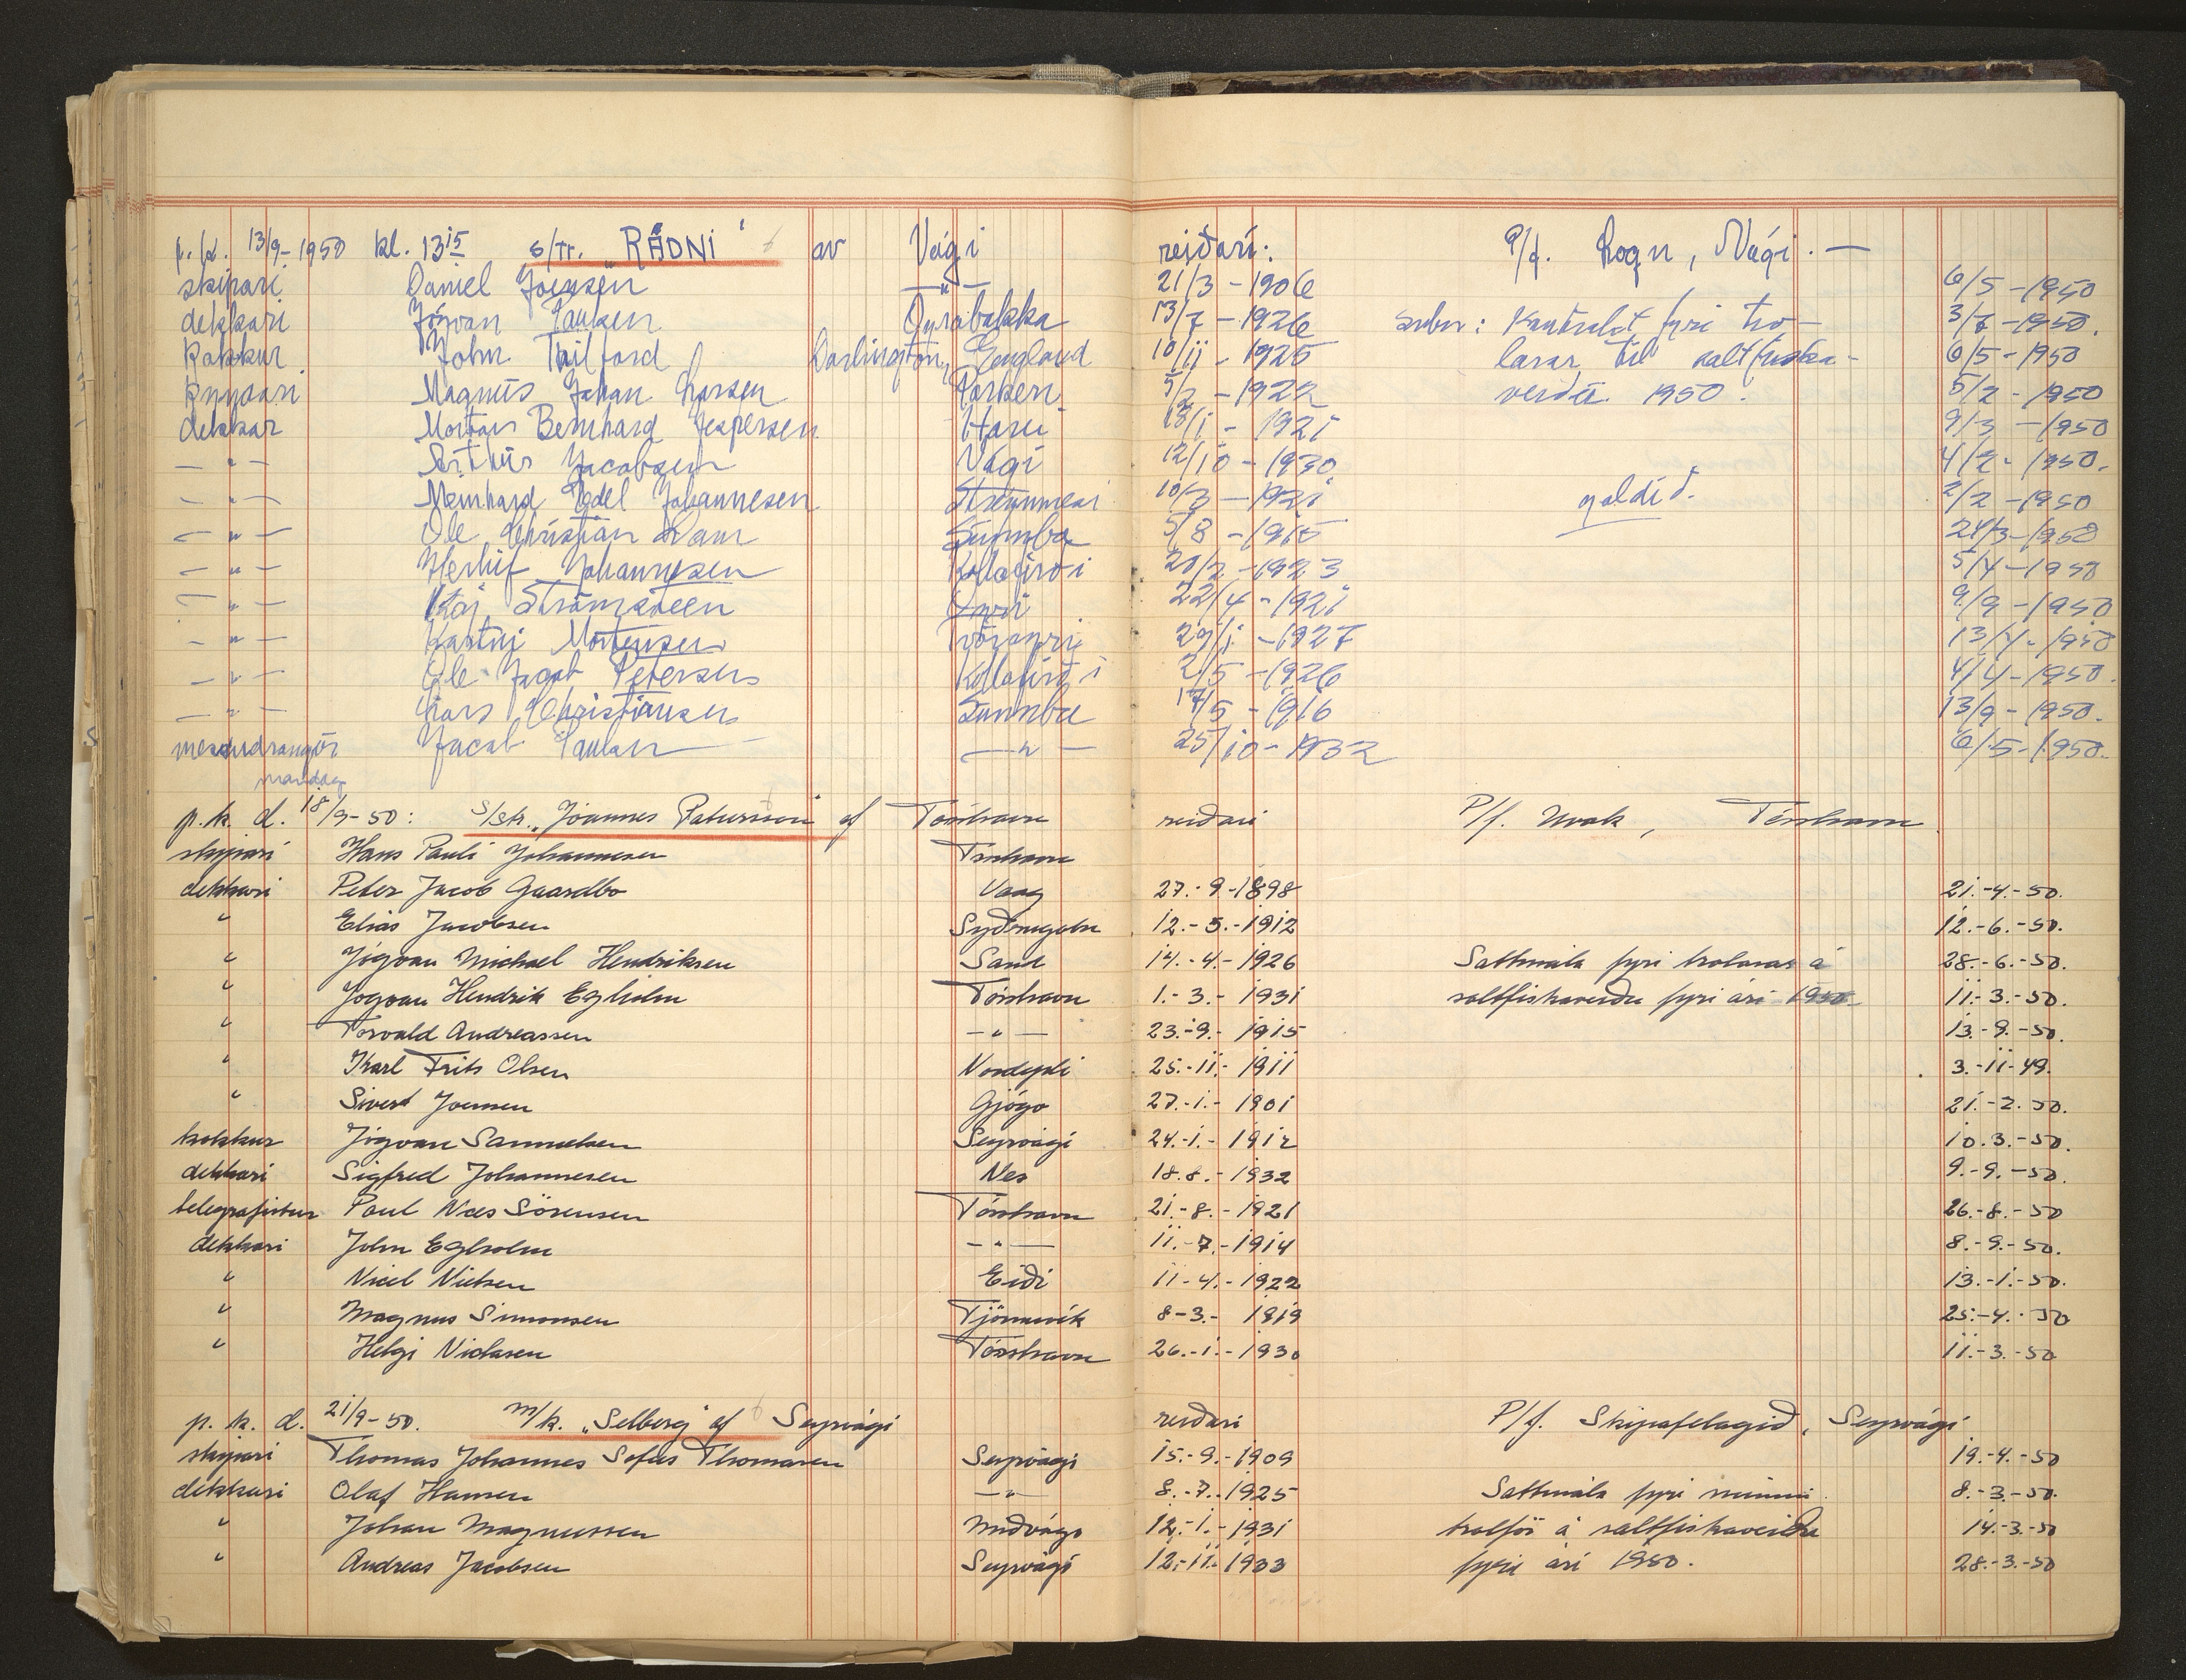 p.k. 13/9-1950 kl. 13 15 s/tr. "RÁÐNI" av Vági reiðari: P/f. Logn, Vági. —
skipari Daniel Joensen —"— 21/3-1906 6/5-1950
dekkari Jógvan Paulsen Oyrabakka 13/7-1926 3/7-1950.
Kokkur John Tailford Darlington, England 10/11-1925 6/5-1950
Magnus Johan Larsen Porkeri 5/2-1922 5/2-1950
dekkar Bernhard Jespersen 18/1-1921 9/3-1950
—"— Jacobsen Vági 12/10-1930 4/2-1950.
—"— Meinhard Edel Johannesen 10/3-1921 goldið. 2/2-1950
—"— Ole Christian Dam Sumba 5/8-1915 24/3-1950
—"— Herluf Johannesen Kollafirði 20/2-1923 5/4-1950
—"— Kaj Strömsteen Oyri 22/4-1921 9/9-1950
—"— Mortensen 29/1-1927 13/4-1950
—"— Ole Jacob Petersen Kollafirði 2/5-1926 4/4-1950.
—"— Lars Christiansen Sumba 17/5-1916 13/9-1950.
Jacob Paulsen —"— 25/10-1932 6/5-1950.
mandag
p.k. d. 18/9-50: s/tr. "Jóannes Patursson" af Tórshavn reiðari P/f. Tórshavn.
skipari Hans Pauli Johannesen Tórshavn
dekkari Peter Jacob Gaardbo Vaag 27.-9.-1898 21.-4.-50.
" Elias Jacobsen 12.-5.-1912 12.-6.-50.
" Jógvan Michael Hendriksen Sand 14.-4.-1926 Sáttmála fyri trolarar á 28.-6.-50.
" Jógvan Hendrik Egholm Tórshavn 1.-3.-1931 saltfiskaveiðu fyri ári 1950 11.-3.-50.
" Torvald Andreassen —"— 23.-9.-1915 13.-9.-50.
" Karl Frits Olsen Nordepli 25.-11.-1911 3.-11-49.
" Sivert Joensen Gjógv 27.-1.-1901 21.-2.50.
kokkur Jógvan Samuelsen Sørvági 24.-1.-1912 10.3.-50.
dekkari Sigfred Johannesen Nes 18.8.-1932 9.-9.-50.
telegrafistur Paul Næs Sörensen Tórshavn 21.-8.-1921 26.-8.-50
dekkari John Egholm —"— 11.-7.-1914 8.-9.-50.
" Niels Nielsen Eiði 11-4.-1922 13.-1.-50.
" Magnus Simonsen Tjörnuvík 8-3.-1919 25.-4.-50
" Helgi Niclasen Tórshavn 26.-1.-1930 11.-3.-50
p. k. d. 21/9-50. m/k. "Selberg" af Seyrvági reiðari P/f. Skipafelagið, Seyrvági
skipari Thomas Johannes Sofus Thomasen Seyrvági 15.-9.-1909 19.-4.-50
dekkari Olaf Hansen —"— 8.-7.-1925 Sáttmála fyri minni 8.-3.-50.
" Johan Magnussen Miðvági 12.-1.-1931 trolför á saltfiskaveiðu 14.-3.-50
" Andreas Jacobsen Seyrvági 12.-11.-1933 fyri ári 1950. 28.-3.-50